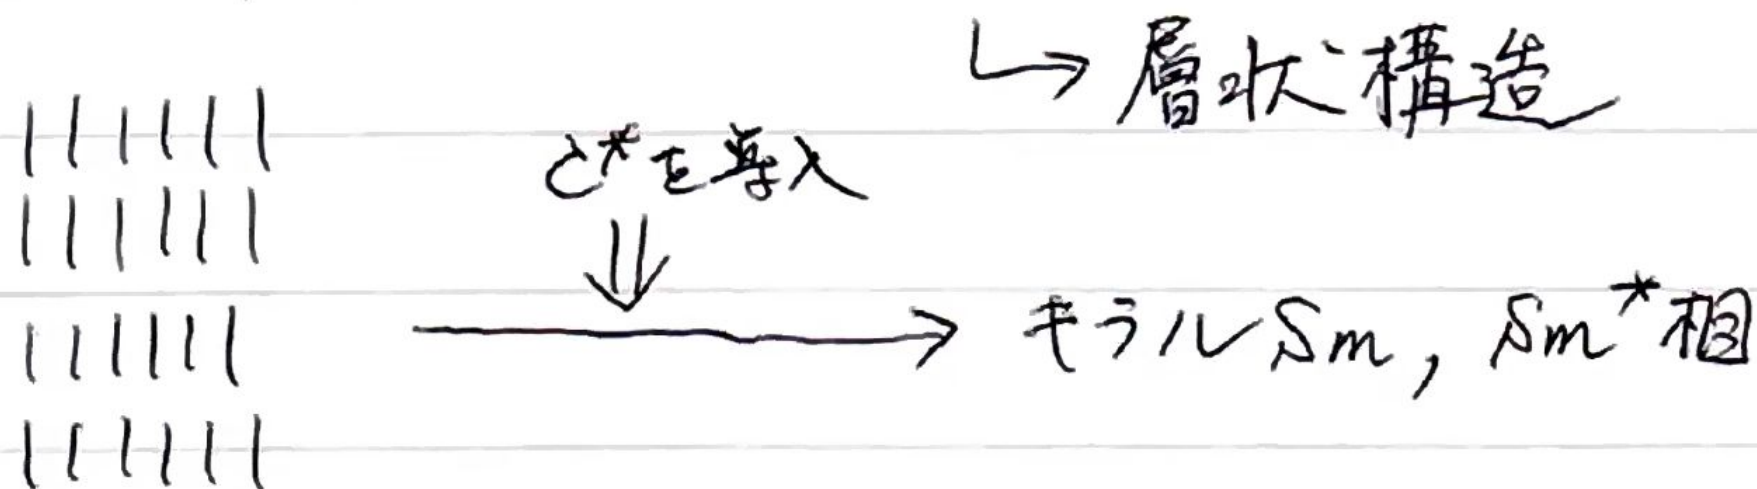 ↳ 層状構造
C*を導入
キラルSm, Sm*相